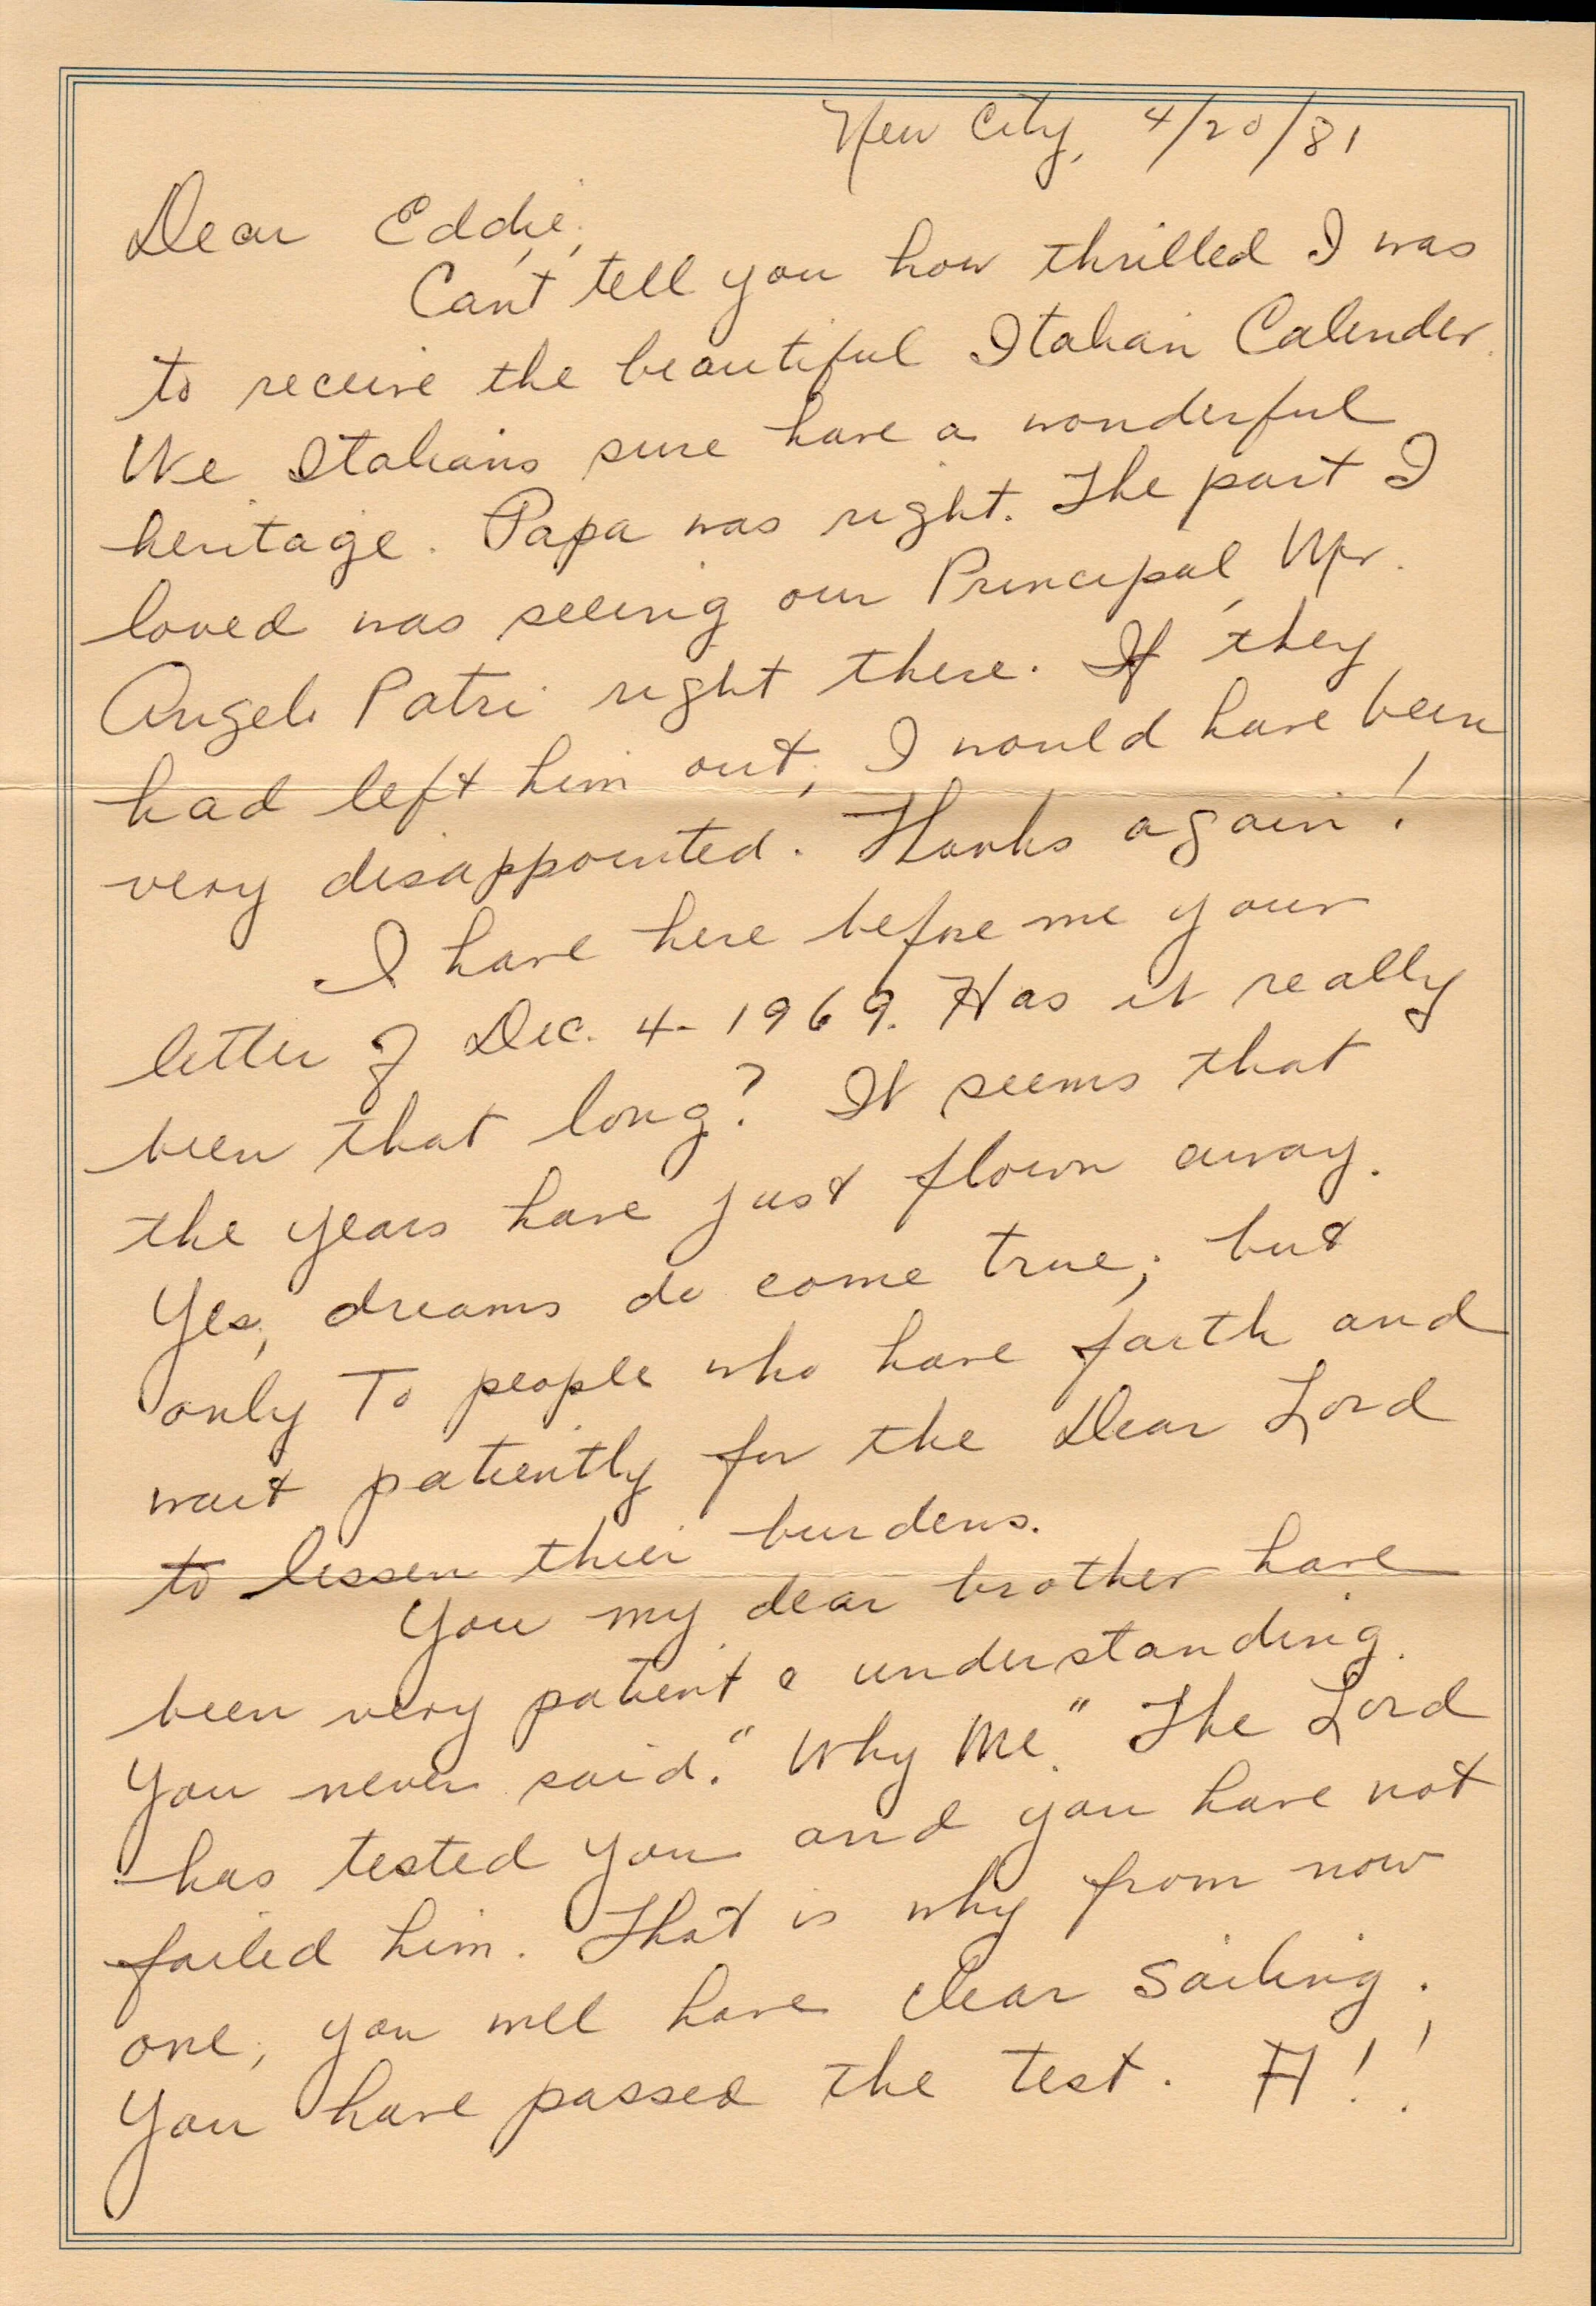 New City, 4/20/81
Dear Eddie,
Can't tell you how thrilled I was
to receive the beautiful Italian Calender.
We Italians sure have a wonderful
heritage. Papa was right. The part I
loved was seeing our Principal, Mr.
Angelo Patri right there. If they
had left him out, I would have been
very disappointed. Thanks again!
I have here before me your
letter of Dec. 4-1969. Has it really
been that long? It seems that
the years have just flown away.
Yes, dreams do come true; but
only to people who have faith and
wait patiently for the Dear Lord
to lessen thier burdens.
You my dear brother have
been very patient & understanding.
You never said. "Why Me." The Lord
has tested you and you have not
failed him. That is why from now
one, you will have clear sailing.
You have passed the test. A!!